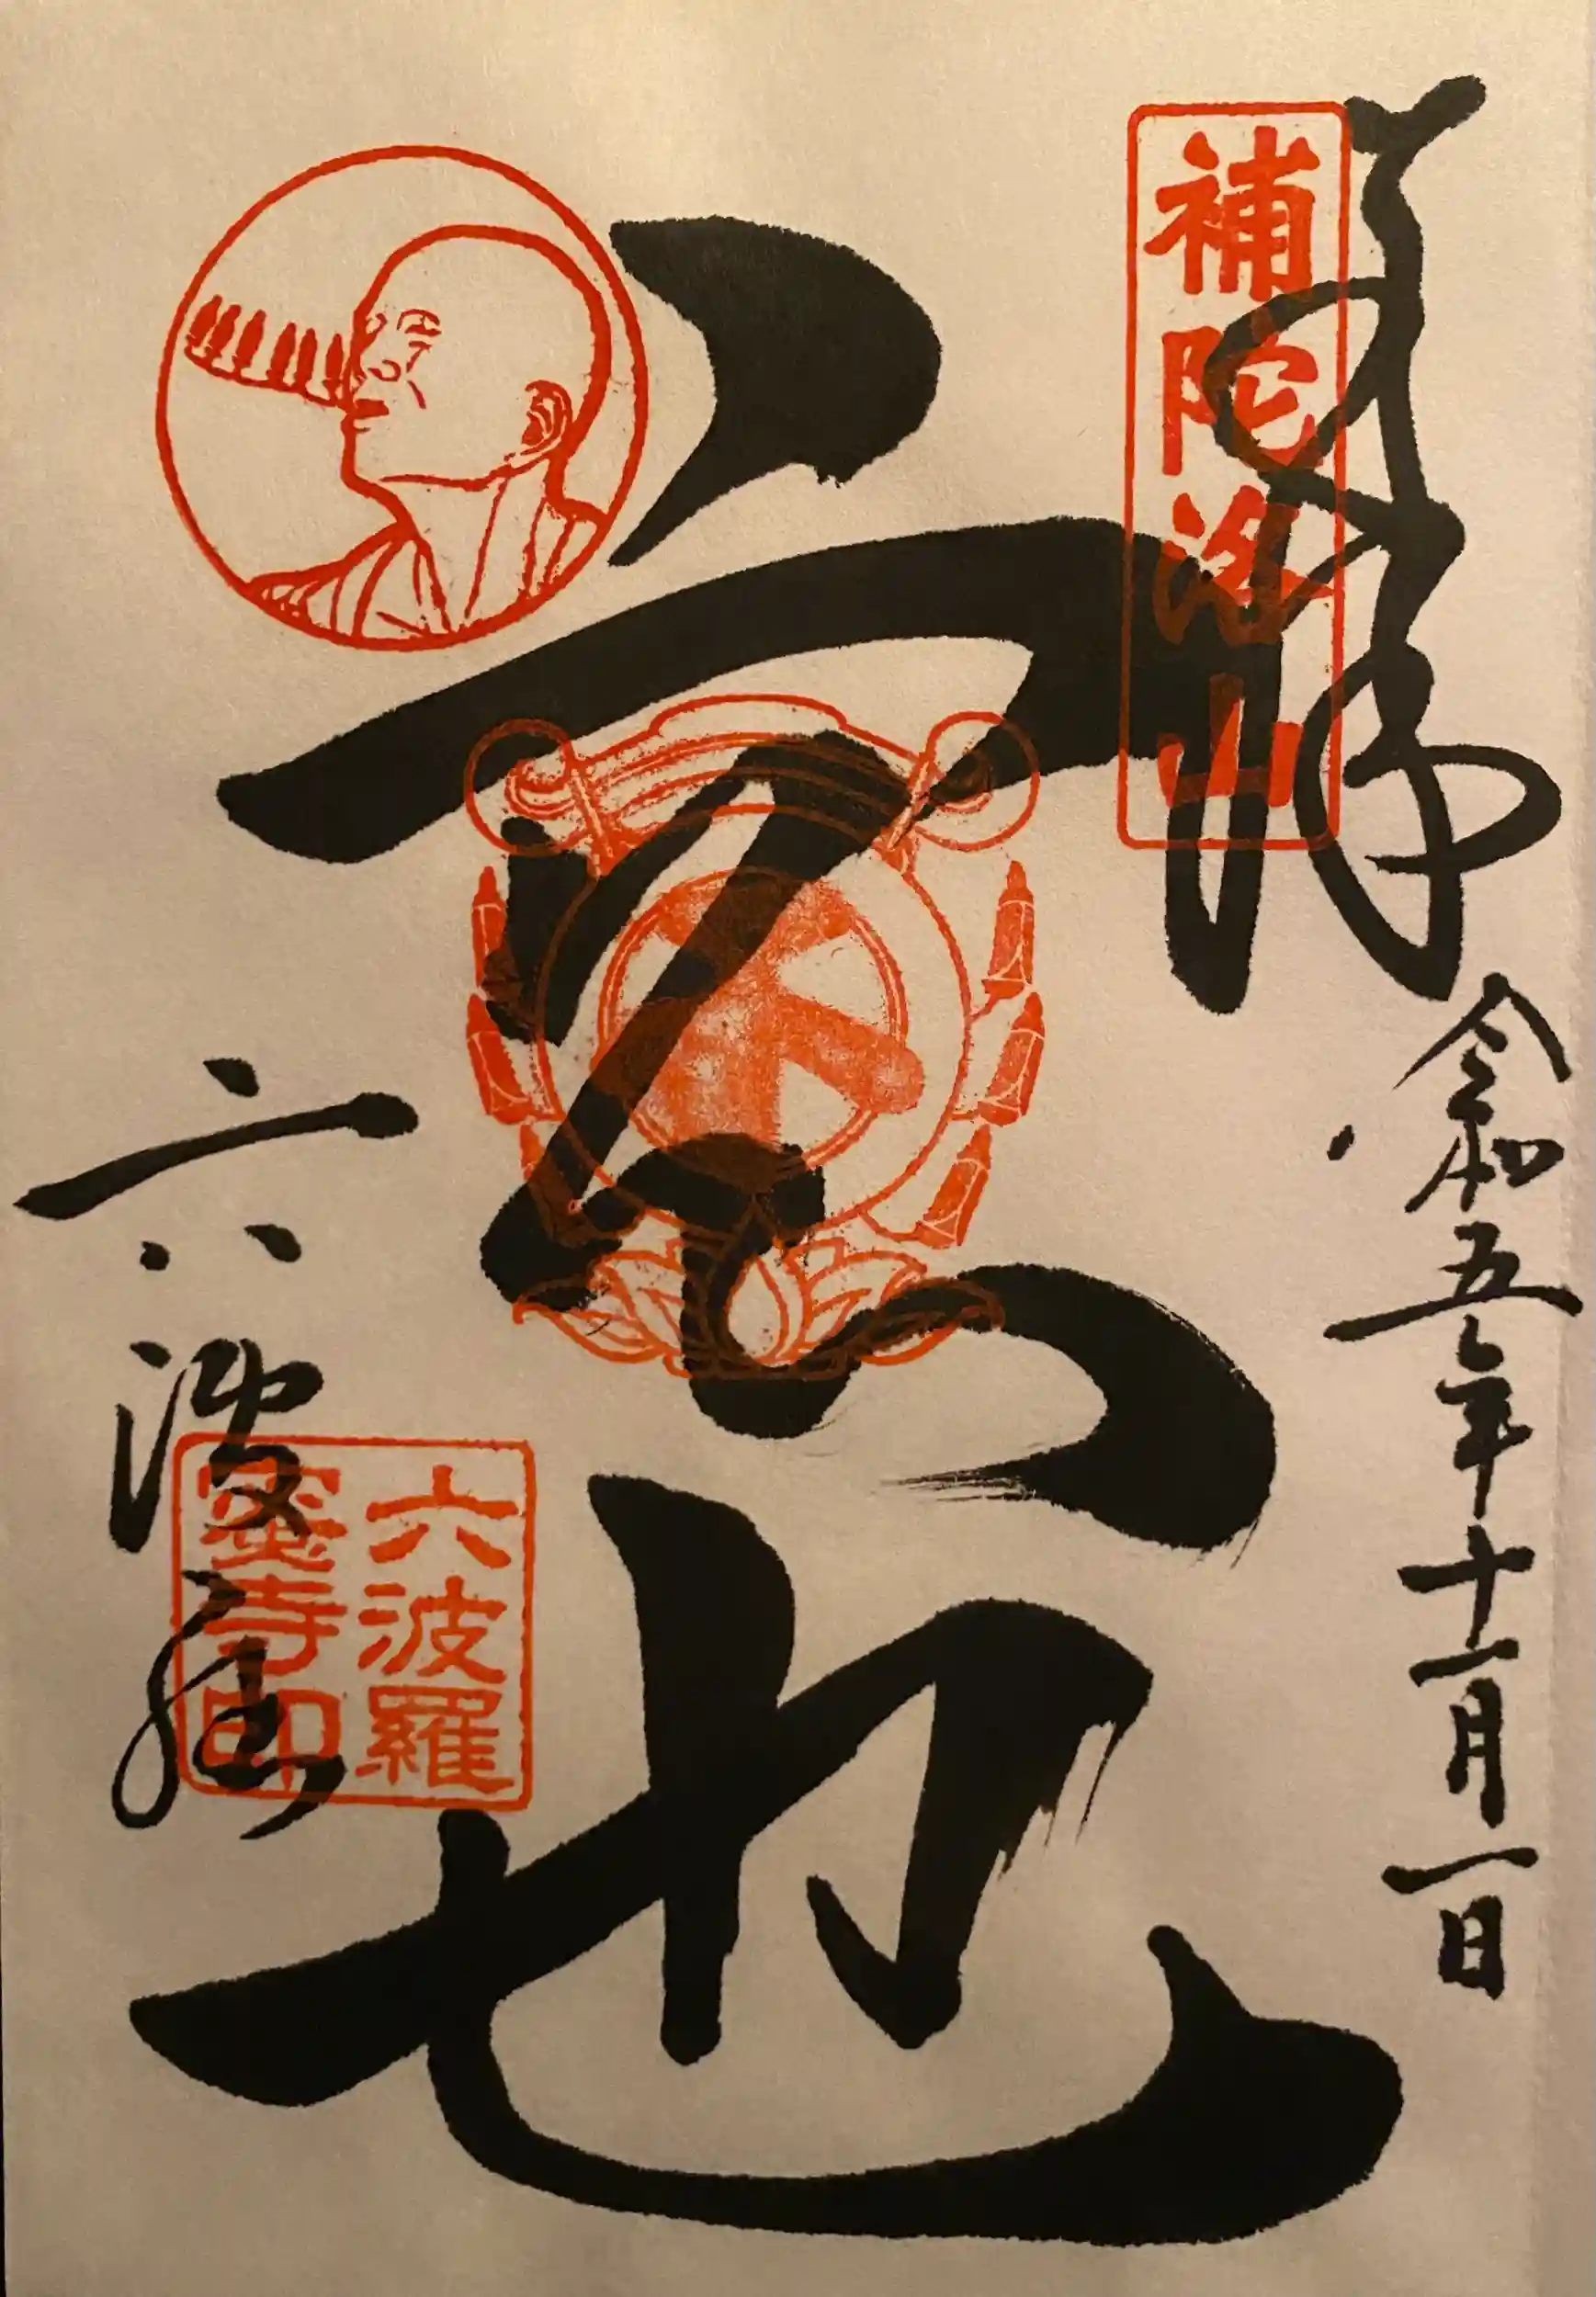 奉拝
補陀洛山
令和五年十一月一日
空也
六波羅
蜜寺印
六波羅